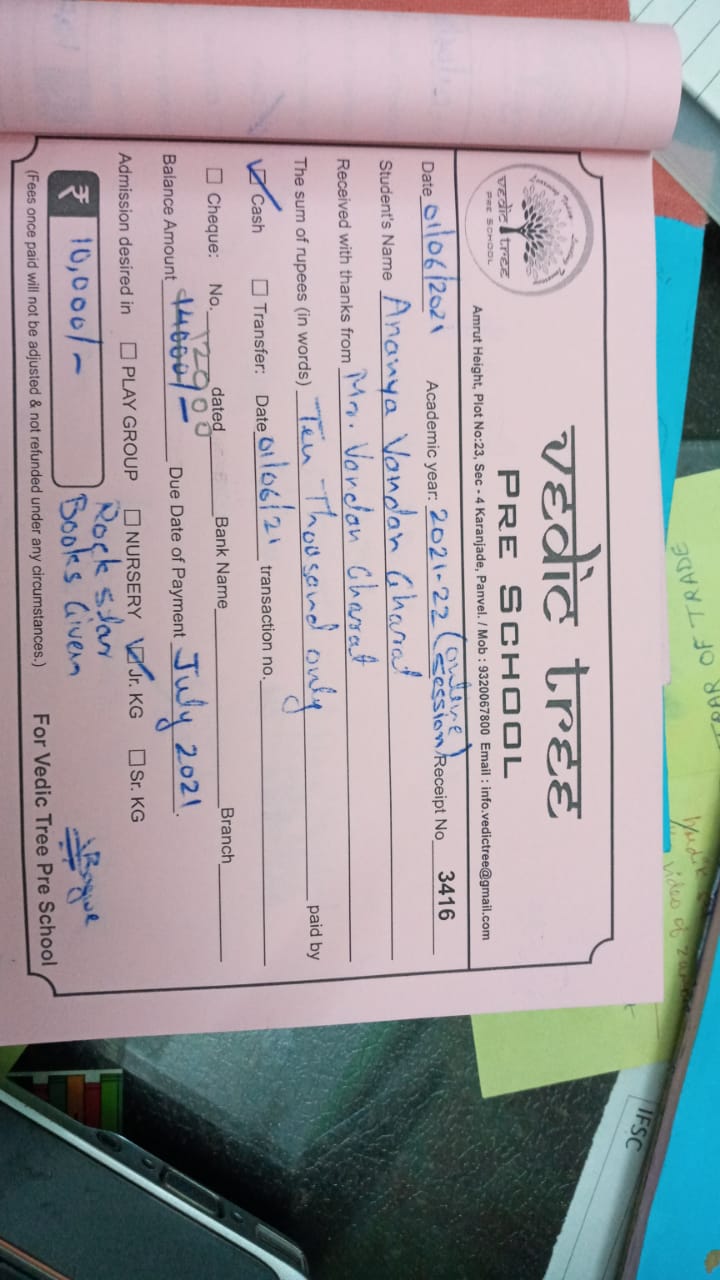 vedic tree
PRE SCHOOL
vedic tree
PRE SCHOOL
Amrut Height, Plot No:23, Sec - 4 Karanjade, Panvel. / Mob : 9320067800 Email : info.vedictree@gmail.com
Date 01/06/2021 Academic year: 2021-22 (online session) Receipt No 3416
Student's Name Ananya Vandan Gharat
Received with thanks from Mr. Vandan Gharat
The sum of rupees (in words) Ten Thousand only paid by
☑ Cash ☐ Transfer: Date 01/06/21 transaction no.
☐ Cheque: No. dated Bank Name Branch
12000
Balance Amount 14000/- Due Date of Payment July 2021.
Admission desired in ☐ PLAY GROUP ☐ NURSERY ☑ Jr. KG ☐ Sr. KG
₹ 10,000/- Rock star
Books Given
(Fees once paid will not be adjusted & not refunded under any circumstances.) For Vedic Tree Pre School
OF TRADE
video of
IFSC